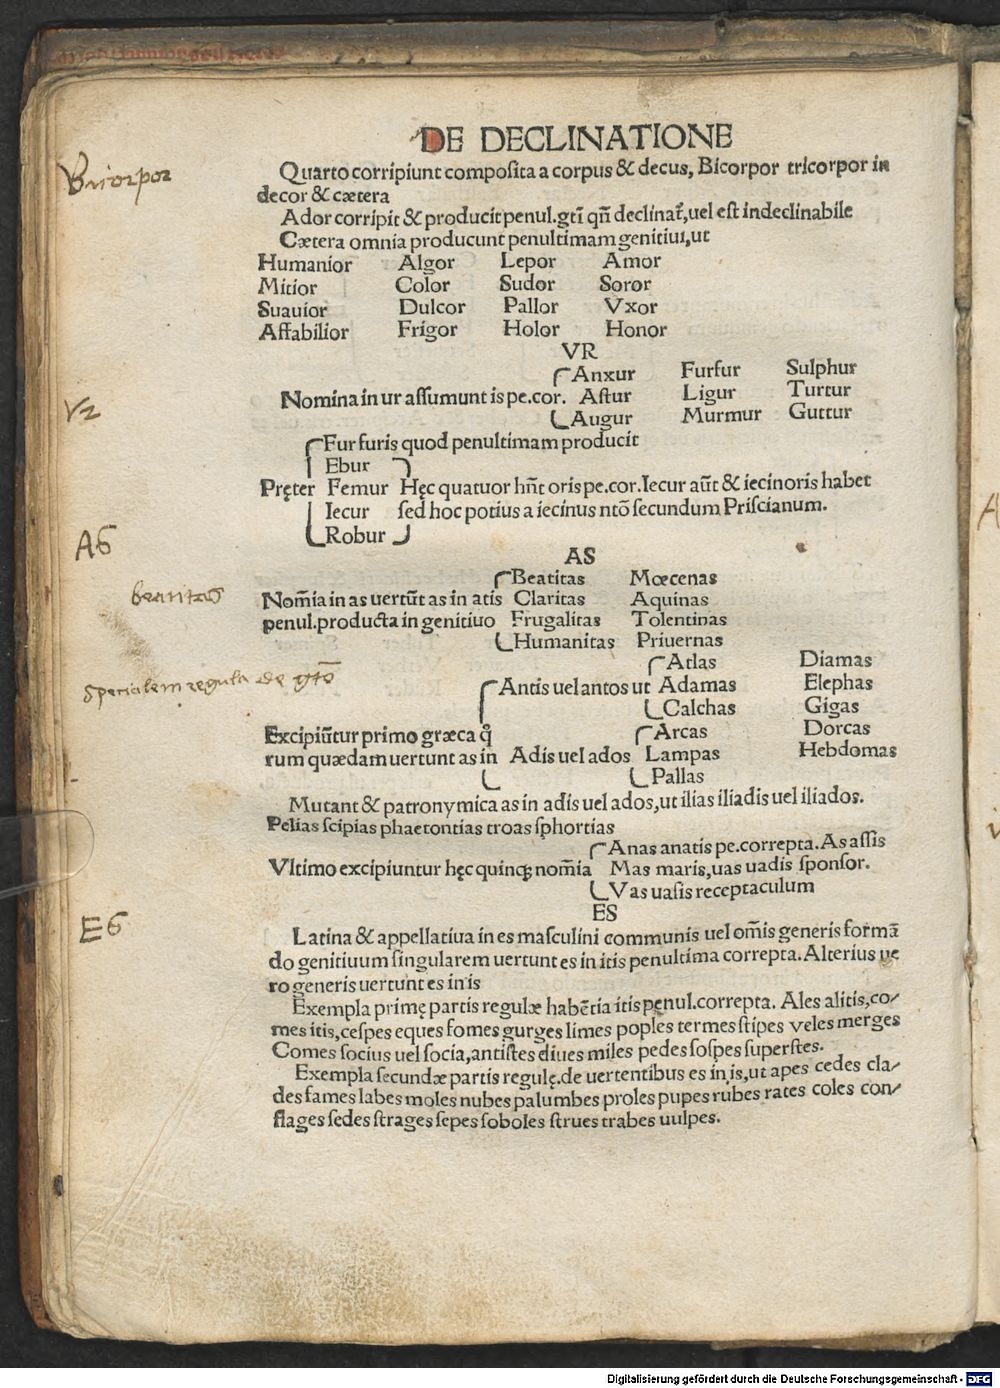 DE DECLINATIONE
Quarto corripiunt composita a corpus & decus, Bicorpor tricorpor in
decor & cætera
Ador corripit & producit penul. gtī qn̄ declinat᷑, uel est indeclinabile
Cætera omnia producunt penultimam genitiui, ut
Humanior Algor Lepor Amor
Mitior Color Sudor Soror
Suauior Dulcor Pallor Vxor
Affabilior Frigor Holor Honor
VR
Anxur Furfur Sulphur
Nomina in ur assumunt is pe. cor. Astur Ligur Turtur
Augur Murmur Guttur
Fur furis quod penultimam producit
Ebur
Pręter Femur Hęc quatuor hn̄t oris pe. cor. Iecur aūt & iecinoris habet
Iecur sed hoc potius a iecinus ntō secundum Priscianum.
Robur
AS
Beatitas Mœcenas
Nom̄ia in as uertūt as in atis Claritas Aquinas
penul. producta in genitiuo Frugalitas Tolentinas
Humanitas Priuernas
Atlas Diamas
Antis uel antos ut Adamas Elephas
Calchas Gigas
Excipiūtur primo græca q̊ Arcas Dorcas
rum quædam uertunt as in Adis uel ados Lampas Hebdomas
Pallas
Mutant & patronymica as in adis uel ados, ut ilias iliadis uel iliados.
Pelias scipias phaetontias troas sphortias
Anas anatis pe. correpta. As assis
Vltimo excipiuntur hęc quinq; nom̄ia Mas maris, uas uadis sponsor.
Vas uasis receptaculum
ES
Latina & appellatiua in es masculini communis uel om̄is generis formā
do genitiuum singularem uertunt es in itis penultima correpta. Alterius ue
ro generis uertunt es in is
Exempla primę partis regulæ habētia itis penul. correpta. Ales alitis, co/
mes itis, cespes eques fomes gurges limes poples termes stipes veles merges
Comes socius uel socia, antistes diues miles pedes sospes superstes.
Exempla secundæ partis regulę. de uertentibus es in is, ut apes cedes cla/
des fames labes moles nubes palumbes proles pupes rubes rates coles con/
flages sedes strages sepes soboles strues trabes uulpes.
Bicorpor
Vr
AS
specialem regula de gtō
ES
Digitalisierung gefördert durch die Deutsche Forschungsgemeinschaft - DFG